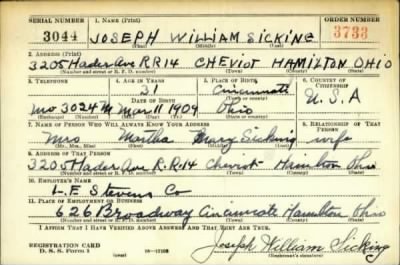 SERIAL NUMBER 1. NAME (Print) ORDER NUMBER
3044 JOSEPH WILLIAM SICKING 3733
(First) (Middle) (Last)
2. ADDRESS (Print)
3205 Hader Ave RR14 CHEVIOT HAMILTON OHIO
(Number and street or R. F. D. number) (Town) (County) (State)
3. TELEPHONE 4. AGE IN YEARS 5. PLACE OF BIRTH 6. COUNTRY OF CITIZENSHIP
31 Cincinnati
DATE OF BIRTH
MO 3024 M Mar 11 1909 Ohio U.S.A
7. NAME OF PERSON WHO WILL ALWAYS KNOW YOUR ADDRESS 8. RELATIONSHIP OF THAT PERSON
Mrs Martha Mary Sicking wife
(Mr., Mrs., Miss) (First) (Middle) (Last)
9. ADDRESS OF THAT PERSON
3205 Hader Ave R.R.14 Cheviot Hamilton Ohio
(Number and street or R. F. D. number) (Town) (County) (State)
10. EMPLOYER'S NAME
L.F. Stevens Co
11. PLACE OF EMPLOYMENT OR BUSINESS
626 Broadway Cincinnati Hamilton Ohio
(Number and street or R. F. D. number) (Town) (County) (State)
I AFFIRM THAT I HAVE VERIFIED ABOVE ANSWERS AND THAT THEY ARE TRUE.
REGISTRATION CARD
D. S. S. Form 1 Joseph William Sicking